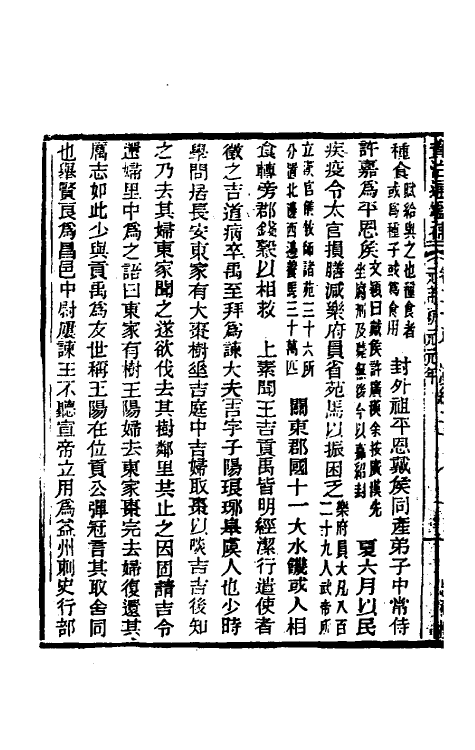 種食賦給與之也種食者或為種子或為食用 封外祖平恩戴矦同產弟子中常侍
許嘉為平恩矦文穎曰戴矦許廣漢余按廣漢先坐腐刑及薨無後今以嘉紹封 夏六月以民
疾疫令太官損膳減樂府員省苑馬以振困乏樂府員大凡八百二十九人武帝所
立漢官儀牧師諸苑三十六所分置北邊西邊養馬三十萬匹 關東郡國十一大水饑或人相
食轉旁郡錢穀以相救 上素聞王吉貢禹皆明經潔行遣使者
徵之吉道病卒禹至拜為諫大夫吉字子陽琅琊臯虞人也少時
學問居長安東家有大棗樹垂吉庭中吉婦取棗以啖吉吉後知
之乃去其婦東家聞之遂欲伐去其樹鄰里共止之因固請吉令
還婦里中為之語曰東家有樹王陽婦去東家棗完去婦復還其
厲志如此少與貢禹為友世稱王陽在位貢公彈冠言其取舍同
也舉賢良為昌邑中尉屢諫王不聽宣帝立用為益州刺史行部